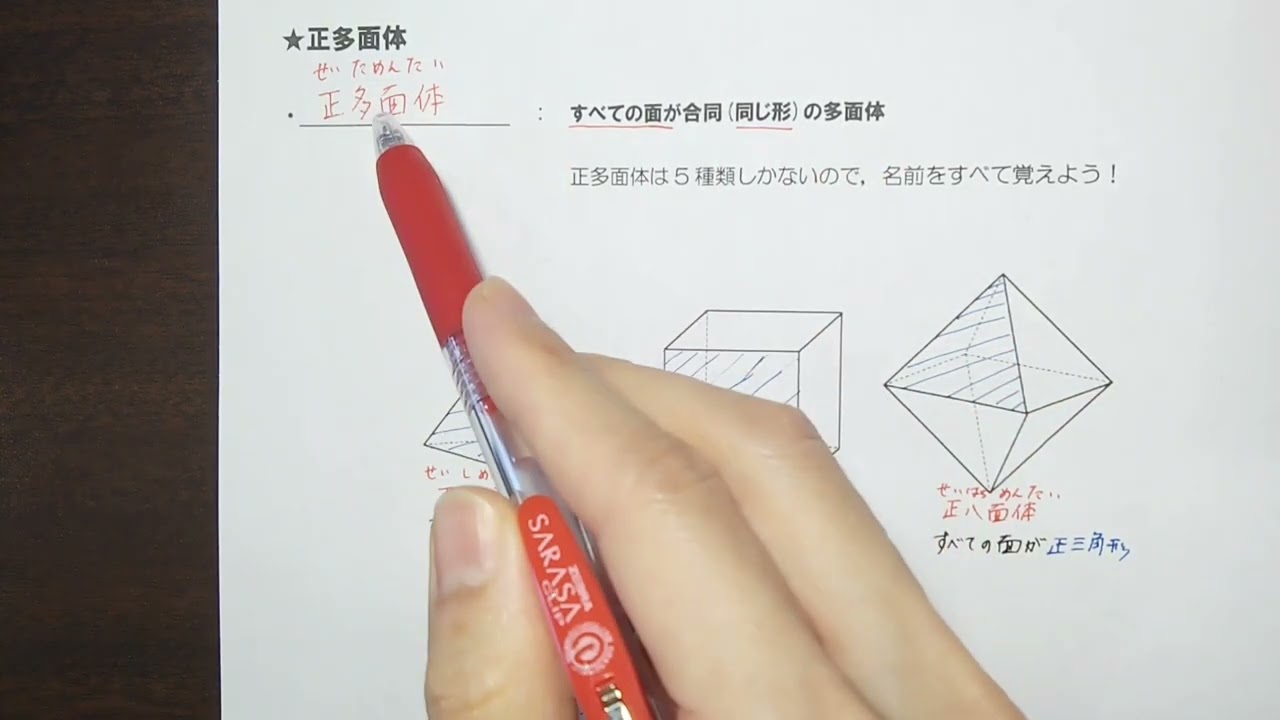 ★正多面体
せいためんたい
・正多面体 : すべての面が合同(同じ形)の多面体
正多面体は5種類しかないので,名前をすべて覚えよう!
せいしめ
せいはちめんたい
正八面体
すべての面が正三角形
SARASA
CLIP
ZEBRA